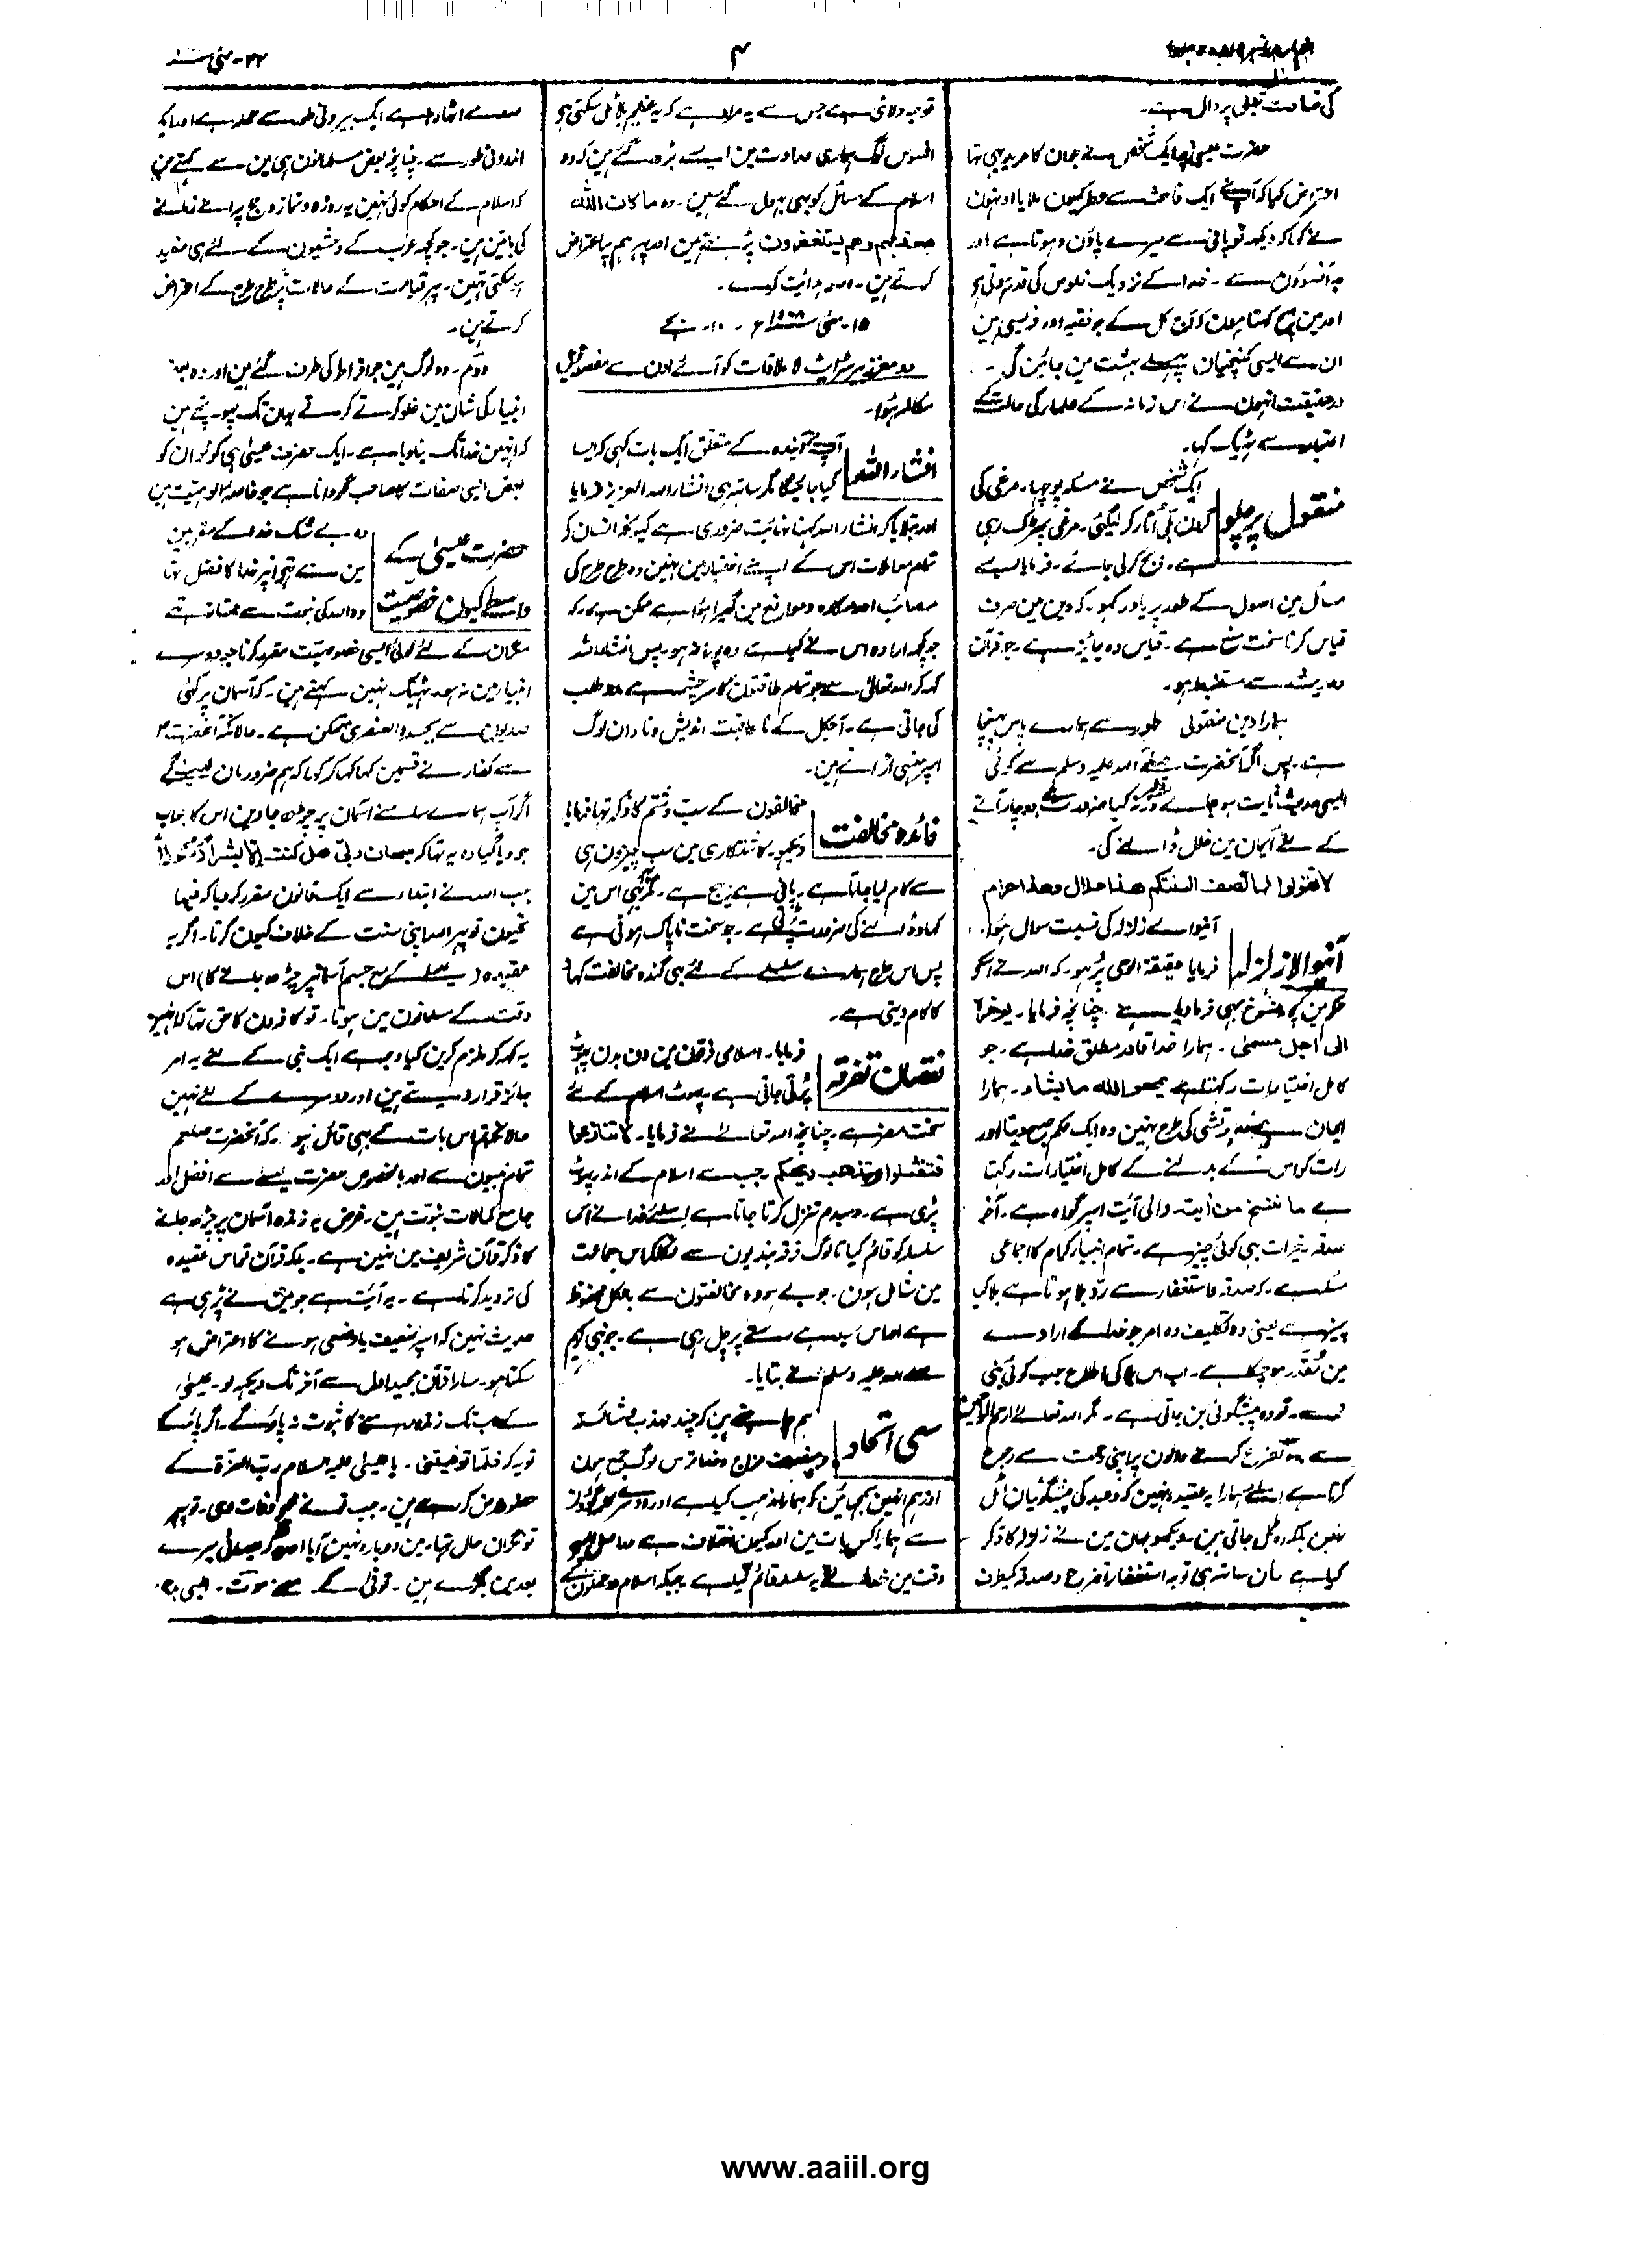 ۴
۲۴-مئی
کی صداقت تعلی پر دال ہے۔
حضرت عیسیٰ پر ایک شخص نے جو ان کا مرید بھی تہا
اعتراض کیا کہ آپنے ایک فاحشہ سے عطر کیوں ملوایا اونہوں
نے کہا کہ دیکھ تو پانی سے میرے پاؤں دہوتا ہے اور
یہ آنسوؤں سے۔ خدا کے نزدیک خلوص کی قدر ہوتی ہے
اور مین سچ کہتا ہون کہ آج کل کے جو فقیہ اور فریسی ہین
ان سے ایسی کنچنیاں پہلے بہشت مین جائین گی۔
درحقیقت انہون نے اس زمانہ کے علماء کی حالت کے
اعتبار سے ٹھیک کہا۔
منقول پر چلو
ایک شخص نے مسئلہ پوچہا۔ مرغی کی
گردن بلی اتار کر لیگئی۔ مرغی پھڑک رہی
ہے۔ ذبح کر لی جائے۔ فرمایا ایسے
مسائل مین اصول کے طور پر یاد رکھو۔ کہ دین مین صرف
قیاس کرنا سخت منع ہے۔ قیاس وہ جائز ہے۔ جو قرآن
و حدیث سے مستنبط ہو۔
ہمارا دین منقولی طور سے ہمارے پاس پہنچا
ہے۔ پس اگر آنحضرت صلے اللہ علیہ وسلم سے کوئی
ایسی حدیث ثابت ہو جائے ورنہ کیا ضرورت ہے دو چار آنے
کے لئے ایمان مین خلل ڈالنے کی۔
لا تقولوا لما تصف السنتکم ھذا حلال وھذا حرام
آنیوالا زلزلہ
آنیوالے زلزلہ کی نسبت سوال ہوا۔
فرمایا حقیقۃ الوحی پڑہو۔ کہ اللہ نے اسکو
حکم مین کچھ منسوخ بھی فرما دیا ہے۔ چنانچہ فرمایا۔ یوخرہ
الی اجل مسمی۔ ہمارا خدا قادر مطلق خدا ہے۔ جو
کامل اختیارات رکھتا ہے یمحو اللہ ما یشاء۔ ہمارا
ایمان ہے وہ جوتشی کی طرح نہین وہ ایک حکم صبح دیتا اور
رات کو اس کے بدلنے کے کامل اختیارات رکھتا
ہے ما ننسخ من آیت۔ والی آیت اسپر گواہ ہے۔ آخر
صدقہ خیرات بھی کوئی چیز ہے۔ تمام انبیاء کرام کا اجماعی
مسئلہ ہے۔ کہ صدقہ و استغفار سے رد بلا ہوتا ہے بلا کیا
چیز ہے یعنی وہ تکلیف دہ امر جو خدا کے ارادے
مین مقدر ہو چکا ہے۔ اب اس بلا کی اطلاع جب کوئی نبی
دے۔ تو وہ پیشگوئی بن جاتی ہے۔ مگر اللہ تعالے ارحم الراحمین
ہے وہ تضرع کرنے والون پر اپنی رحمت سے رجوع
کرتا ہے اسلئے ہمارا یہ عقیدہ نہین کہ وعید کی پیشگوئیان اٹل
ہین بلکہ وہ ٹل جاتی ہین۔ دیکھو جہان مین نے زلزلہ کا ذکر
کیا ہے وہان ساتھ ہی توبہ استغفار تضرع و صدقہ کیطرف
توجہ دلائی ہے جس سے یہ مراد ہے کہ یہ عظیم بلا ٹل سکتی ہو
افسوس لوگ ہماری عداوت مین ایسے بڑھ گئے ہین کہ وہ
اسلام کے مسائل کو بھی بہول گئے ہین۔ وہ ما کان اللہ
معذبھم وھم یستغفرون پڑہتے ہین اور پھر ہم پر اعتراض
کرتے ہین۔ اللہ ہدائت کرے۔
۱۵-مئی ۱۹۰۸ء ۱۰- بجے
دو معزز بیرسٹر ایٹ لا ملاقات کو آئے اون سے مفصلہ ذیل
مکالمہ ہوا۔
انشاء اللہ
آپنے آیندہ کے متعلق ایک بات کہی کہ ایسا
کیا جائیگا مگر ساتھ ہی انشاء اللہ العزیز فرمایا
اور بتلایا کہ انشاء اللہ کہنا نہائت ضروری ہے کیونکہ انسان کے
تمام معاملات اس کے اپنے اختیار مین نہین وہ طرح طرح کی
مصائب اور مکارہ و موانع مین گھرا ہوا ہے ممکن ہے کہ
جو کچھ ارادہ اس نے کیا ہے وہ پورا نہ ہو۔ پس انشاء اللہ
کہہ کر اللہ تعالی سے جو تمام طاقتون کا سرچشمہ ہے مدد طلب
کی جاتی ہے۔ آجکل کے نا عاقبت اندیش و نادان لوگ
اسپر ہنسی اڑاتے ہین۔
فائدہ مخالفت
مخالفون کے سب و شتم کا ذکر تہا فرمایا
دیکھو۔ کاشتکاری مین سب چیزون ہی
سے کام لیا جاتا ہے۔ پانی ہے بیج ہے۔ مگر پھر بھی اس مین
کہاد ڈالنے کی ضرورت پڑتی ہے۔ جو سخت ناپاک ہوتی ہے
پس اس طرح ہمارے سلسلے کے لئے بھی گندہ مخالفت کہاد
کا کام دیتی ہے۔
نقصان تفرقہ
فرمایا۔ اسلامی فرقون مین دن بدن پھوٹ
پڑتی جاتی ہے۔ پھوٹ اسلام کے لئے
سخت مضر ہے۔ چنانچہ اللہ تعالے نے فرمایا۔ لا تنازعوا
فتفشلوا وتذھب ریحکم۔ جب سے اسلام کے اندر پھوٹ
پڑی ہے۔ دمبدم تنزل کرتا جاتا ہے اسلئے خدا نے اس
سلسلہ کو قائم کیا تا لوگ فرقہ بندیون سے نکلکر اس جماعت
مین شامل ہون۔ جو بے ہودہ مخالفتون سے بالکل محفوظ
ہے اور اس سیدہے رستے پر چل رہی ہے۔ جو نبی کریم
صلے اللہ علیہ وسلم نے بتایا۔
سعی اتحاد
ہم چاہتے ہین کہ چند مہذب شائستہ
منصف مزاج و خدا ترس لوگ جمع ہون
اور ہم انہین سمجہائین کہ ہمارا مذہب کیا ہے اور دوسرے کلمہ گوؤن
سے ہمارا کس بات مین اور کیون اختلاف ہے
وقت مین خدا نے یہ سلسلہ قائم کیا ہے۔ جبکہ اسلام دو حملون کے
صدمے اٹھا رہا ہے ایک بیرونی طور سے حملہ ہے اور ایک
اندرونی طور سے۔ چنانچہ بعض مسلمانون ہی مین سے کہتے ہین
کہ اسلام کے احکام کوئی نہین یہ روزہ و نماز و حج پرانے زمانے
کی باتین ہین۔ جو کچھ عرب کے وحشیون کے لئے ہی مفید
ہو سکتی تہین۔ پھر قیامت کے حالات پر طرح طرح کے اعتراض
کرتے ہین۔
دوم۔ وہ لوگ ہین جو افراط کی طرف گئے ہین اور وہ
انبیاء کی شان مین غلو کرتے کرتے یہان تک پہونچے ہین
کہ انہین خدا تک بنا دیا ہے۔ ایک حضرت عیسیٰ ہی کو لو ان کو
بعض ایسی صفات کا صاحب گردانا ہے جو خاصہ الوہیت ہین
حضرت عیسیٰ کے
واسطے کیوں خصوصیت
وہ بے شک خدا کے مقربین
مین سے تہے انپر خدا کا فضل تہا
وہ اللہ کی نبوت سے ممتاز تھے
مگر ان کے لئے کوئی ایسی خصوصیت مقرر کرنا جو دوسرے
انبیاء مین نہ ہو ٹھیک نہین کہتے ہین۔ کہ آسمان پر کئی
صدیون سے بجسدہ العنصری متمکن ہے۔ حالانکہ آنحضرت
سے کفار نے قسمین کہا کہا کر کہا کہ ہم ضرور مان لینگے
اگر آپ ہمارے سامنے آسمان پر چڑھ جاوین اس کا جواب
جو دیا گیا وہ یہ تہا کہ سبحان ربی ھل کنت الا بشرا رسولا
جب اللہ نے ابتداء سے ایک قانون مقرر کر دیا کہ فیہا
تحیون تو پھر وہ اپنی سنت کے خلاف کیون کرتا۔ اگر یہ
عقیدہ (عیسی کے مع جسم آسمانپر چڑھ جانے کا) اس
وقت کے مسلمانون مین ہوتا۔ تو کافرون کا حق تہا کہ انہین
یہ کہہ کر ملزم کرین کیا وجہ ہے ایک نبی کے لئے یہ امر
جائز قرار دیتے ہین اور دوسرے کے لئے نہین
حالانکہ تم اس بات کے بھی قائل ہو۔ کہ آنحضرت صلعم
تمام نبیون سے اور بالخصوص حضرت عیسے سے افضل اور
جامع کمالات نبوت ہین۔ غرض یہ زندہ آسمان پر چڑھ جانے
کا ذکر قرآن شریف مین نہین ہے۔ بلکہ قرآن تو اس عقیدہ
کی تردید کرتا ہے۔ یہ آیت ہے جو مین نے پڑہی ہے
حدیث نہین کہ اسپر ضعیف یا وضعی ہونے کا اعتراض ہو
سکتا ہو۔ سارا قرآن مجید اول سے آخر تک دیکھ لو۔ عیسیٰ
کے اب تک زندہ رہنے کا ثبوت نہ پاؤ گے۔ اگر پاؤ گے
تو یہ کہ فلما توفیتنی۔ یا عیسیٰ علیہ السلام رب العزۃ کے
حضور عرض کر رہے ہین۔ جب تو نے مجھے وفات دی۔ تو پھر
تو نگران حال تہا۔ مین دوبارہ نہین آیا اور اگر عیسائی میرے
بعد مین بگڑے ہین۔ توفی کے معنے موت۔
www.aaiil.org